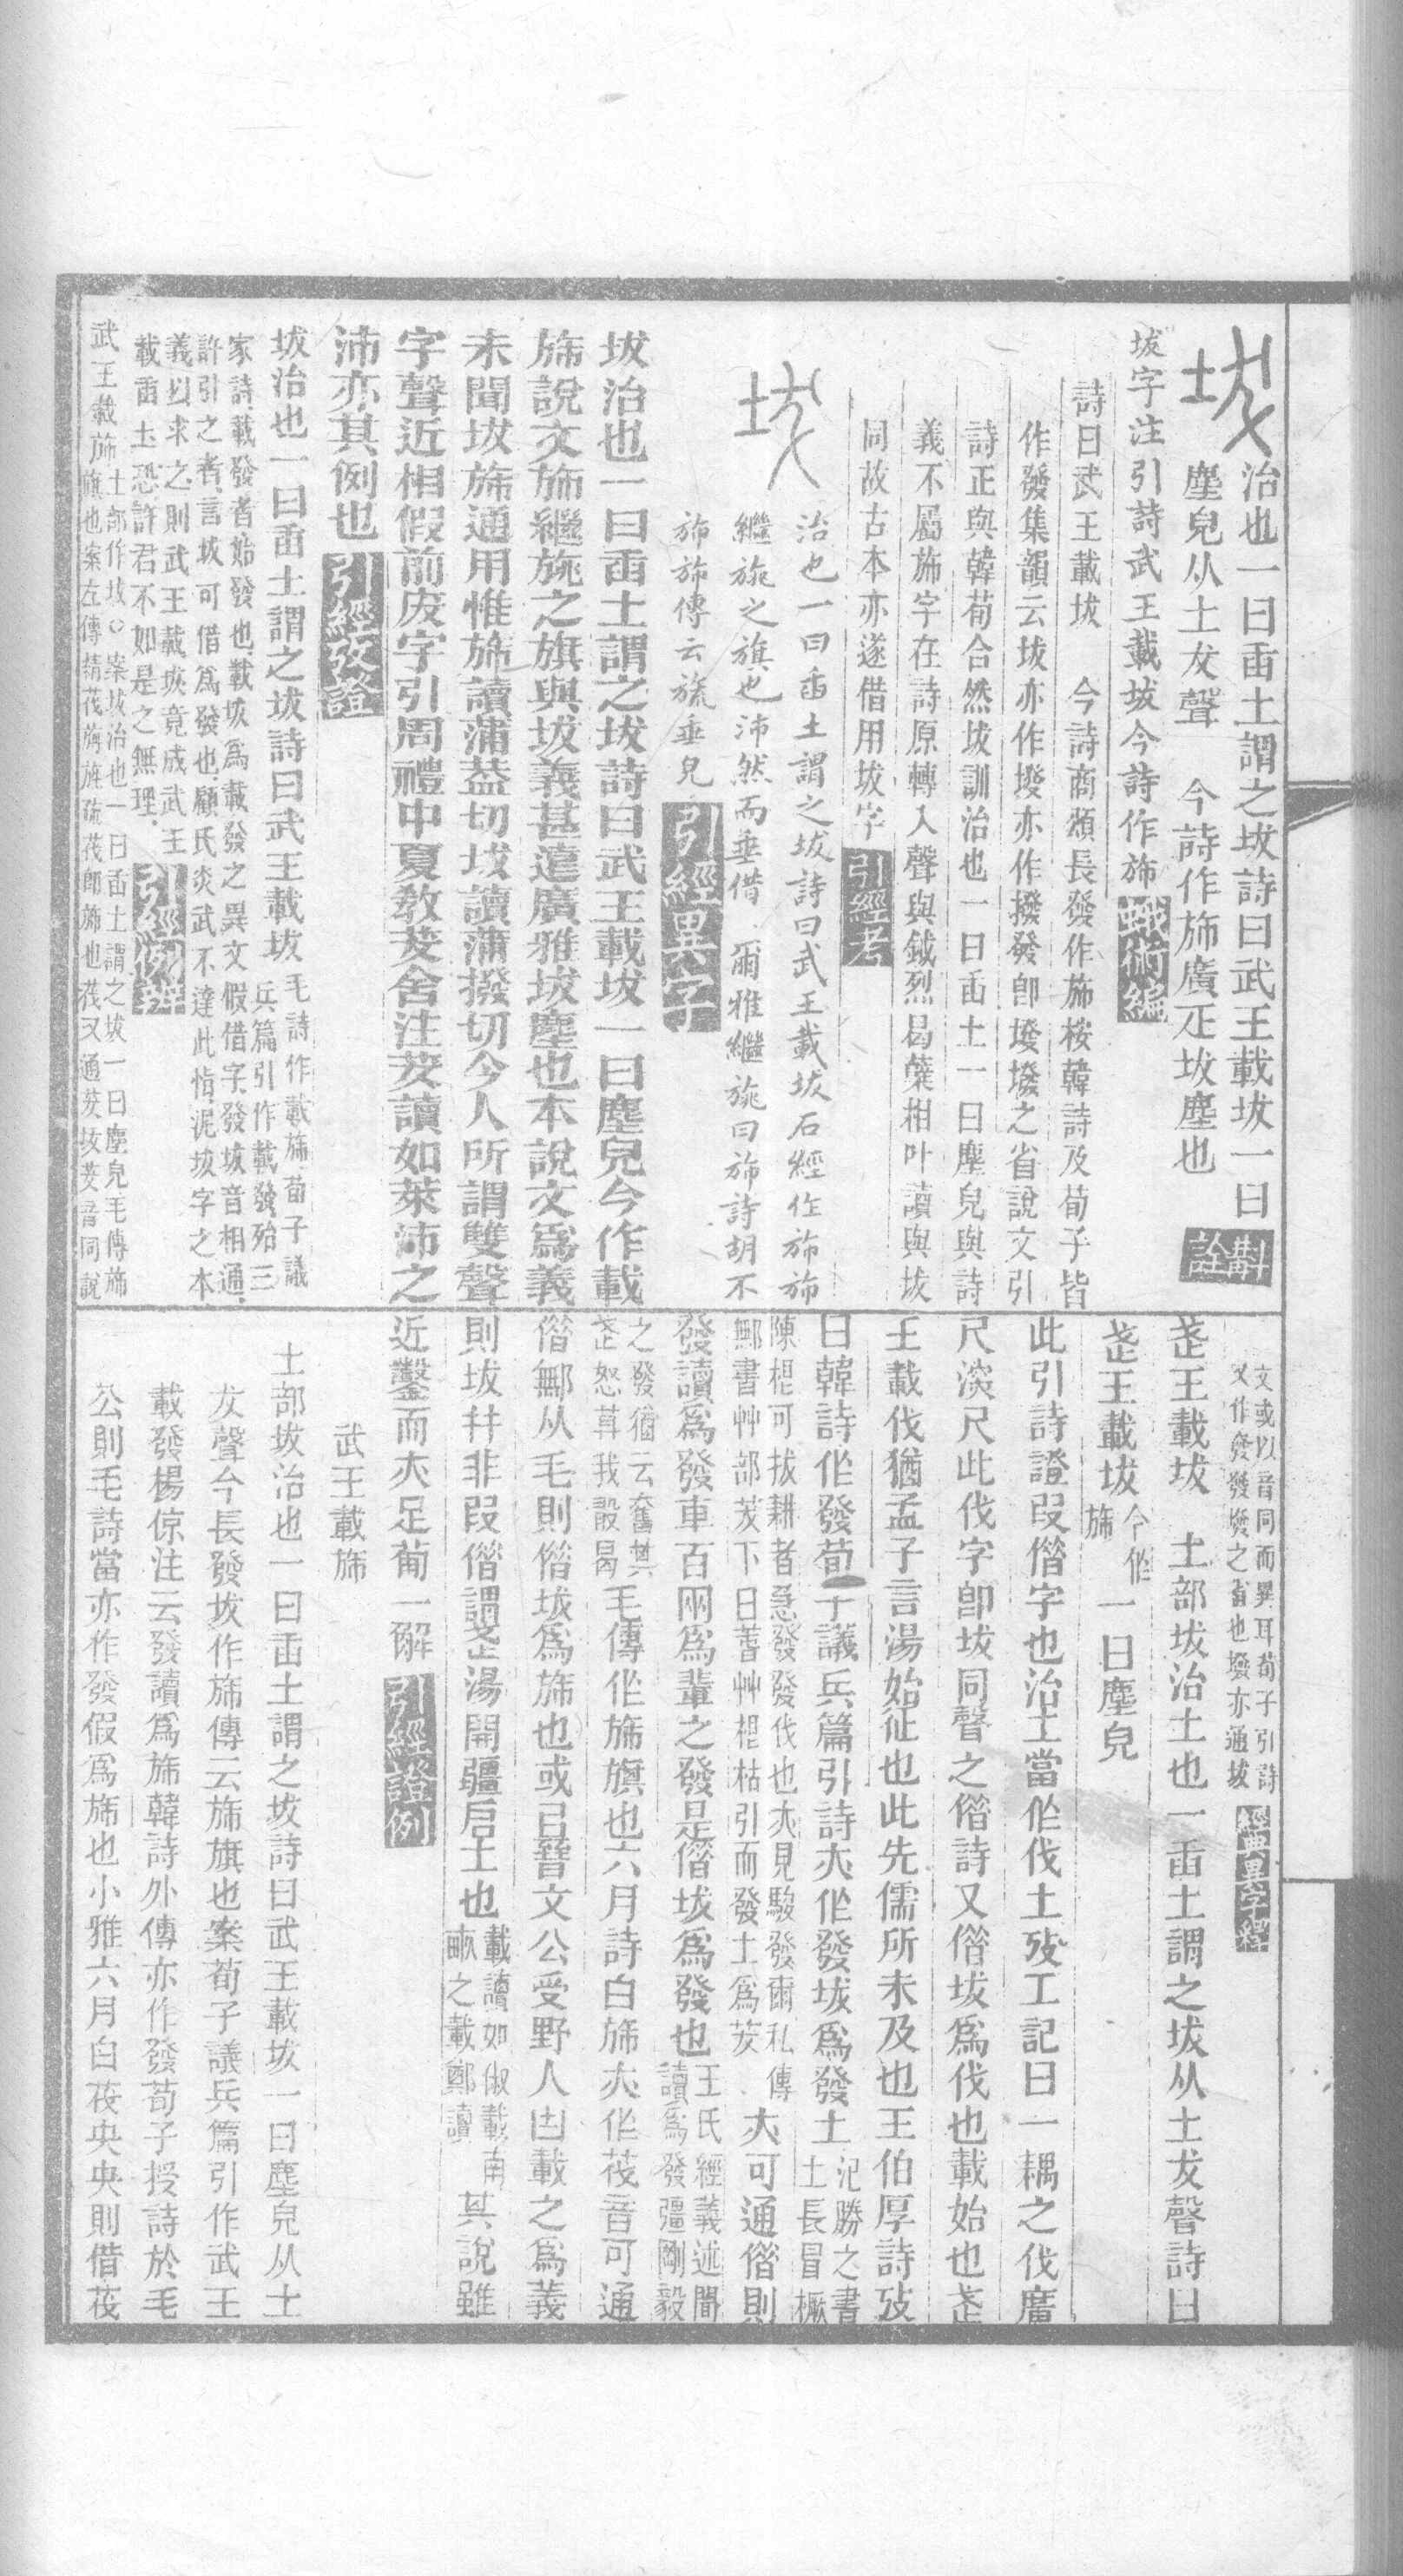 坺
治也一曰臿土謂之坺詩曰武王載坺一曰
塵皃从土犮聲　今詩作旆廣疋坺塵也
斠詮
坺字注引詩武王載坺今詩作旆蛾術編
詩曰武王載坺　今詩商頌長發作旆桉韓詩及荀子皆
作發集韻云坺亦作墢亦作撥發卽墢墢之省說文引
詩正與韓荀合然坺訓治也一曰臿土一曰塵皃與詩
義不屬旆字在詩原轉入聲與鉞烈曷櫱相叶讀與坺
同故古本亦遂借用坺字引經考
坺
治也一曰臿土謂之坺詩曰武王載坺石經作旆旆
繼旐之旗也沛然而垂借　爾雅繼旐曰旆詩胡不
旆旆傳云旐垂皃引經異字
坺治也一曰臿土謂之坺詩曰武王載坺一曰塵皃今作載
旆說文旆繼旐之旗與坺義甚遠廣雅坺塵也本說文爲義
未聞坺旆通用惟旆讀蒲葢切坺讀蒲撥切今人所謂雙聲
字聲近相假前庋字引周禮中夏敎茇舍注茇讀如萊沛之
沛亦其例也引經攷證
坺治也一曰臿土謂之坺詩曰武王載坺
毛詩作載旆荀子議
兵篇引作載發殆三
家詩載發者始發也載坺爲載發之異文假借字發坺音相通
許引之者言坺可借爲發也顧氏炎武不達此恉泥坺字之本
義以求之則武王載坺竟成武王
載臿土恐許君不如是之無理引經例辨
武王載旆
土部作坺○案坺治也一曰臿土謂之坺一曰塵皃毛傳旆
旗也案左傳綪茷旃旌疏茷卽旆也茷又通茇坺茇音同說
文或以音同而異耳荀子引詩
又作發發墢之省也墢亦通坺
經典異字釋
武王載坺　土部坺治土也一臿土謂之坺从土犮聲詩曰
武王載坺
今作
旆
一曰塵皃
此引詩證叚借字也治土當作伐土攷工記曰一耦之伐廣
尺㴱尺此伐字卽坺同聲之借詩又借坺爲伐也載始也武
王載伐猶孟子言湯始征也此先儒所未及也王伯厚詩攷
曰韓詩作發荀子議兵篇引詩亦作發坺爲發土
氾勝之書
土長冒橛
陳根可拔耕者急發發伐也亦見駿發爾私傳
鄦書艸部茇下曰春艸根枯引而發土爲茇
亦可通借則
發讀爲發車百兩爲輩之發是借坺爲發也
王氏經義述聞
讀爲發彊剛毅
之發猶云奮其
武怒莫我敢曷
毛傳作旆旗也六月詩白旆亦作茷音可通
借鄦从毛則借坺爲旆也或㠯晉文公受野人凷載之爲義
則坺幷非叚借謂武湯開疆启土也
載讀如俶載南
畝之載鄭讀
其說雖
近鑿而亦足葡一解引經證例
武王載旆
土部坺治也一曰臿土謂之坺詩曰武王載坺一曰塵皃从土
犮聲今長發坺作旆傳云旆旗也案荀子議兵篇引作武王
載發楊倞注云發讀爲旆韓詩外傳亦作發荀子授詩於毛
公則毛詩當亦作發假爲旆也小雅六月白茷央央則借茷